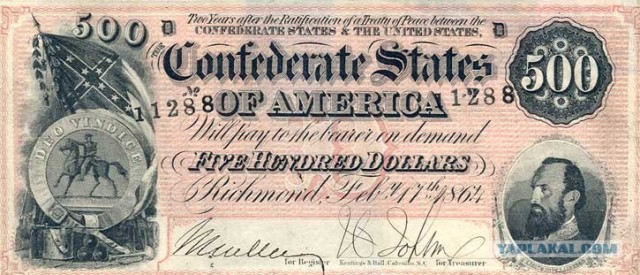 Two Years after the Ratification of a Treaty of Peace between the
CONFEDERATE STATES & THE UNITED STATES,
500 D D
THE
Confederate States
500
No 11288 No 1288
OF AMERICA
Will pay to the bearer on demand
DEO VINDICE
FIVE HUNDRED DOLLARS
Richmond, Feby 17th 1864
for Register Keatinge & Ball, Columbia, S.C. for Treasurer
YAPLAKAL.COM